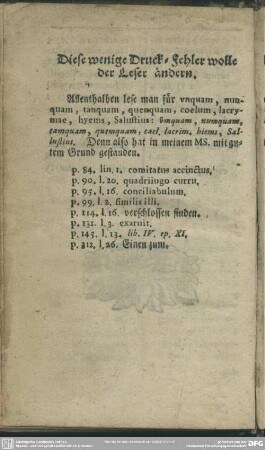 Diese wenige Druck-Fehler wolle
der Leser ändern.
Allenthalben lese man für vnquam, nun-
quam, tanquam, quenquam, coelum, lacry-
mae, hyems, Salustius: vmquam, numquam,
tamquam, quemquam, cael. lacrim. hiems, Sal-
lustius. Denn also hat in meinem MS. mit gu-
tem Grund gestanden.
p. 84, lin. 1. comitatus accinctus,
p. 90. l. 20. quadriiugo curru,
p. 95. l. 16. conciliabulum,
p. 99. l. 2. similis illi.
p. 114. l. 16. verschlossen finden.
p. 131. l. 3. exaruit.
p. 145. l. 13. lib. IV. ep. XI.
p. 312, l. 26. Einen zum.
DFG